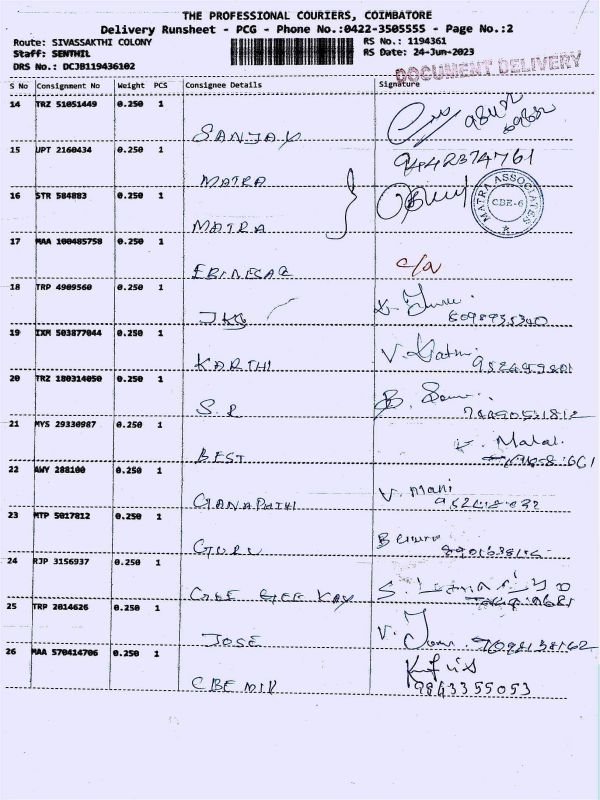 THE PROFESSIONAL COURIERS, COIMBATORE
Delivery Runsheet - PCG - Phone No.:0422-3505555 - Page No.:2
Route: SIVASSAKTHI COLONY RS No.: 1194361
Staff: SENTHIL RS Date: 24-Jun-2023
DRS No.: DCJB119436102
DOCUMENT DELIVERY
S No Consignment No Weight PCS Consignee Details Signature
14 TRZ 51051449 0.250 1
SANJAY
15 UPT 2160434 0.250 1 9442374761
MATRA
16 STR 584883 0.250 1
MATRA ASSOCIATES CBE-6
MATRA
17 MAA 100485758 0.250 1
EBINESAR
18 TRP 4909560 0.250 1
JKB
19 IXM 503877044 0.250 1
KARTHI
20 TRZ 180314050 0.250 1
S.R
21 MYS 29330987 0.250 1
BEST
22 AWY 288100 0.250 1
V. Mani
GANAPATHI
23 MTP 5017812 0.250 1
GURU
24 RJP 3156937 0.250 1
25 TRP 2014626 0.250 1
JOSE
26 MAA 570414706 0.250 1
9843355053